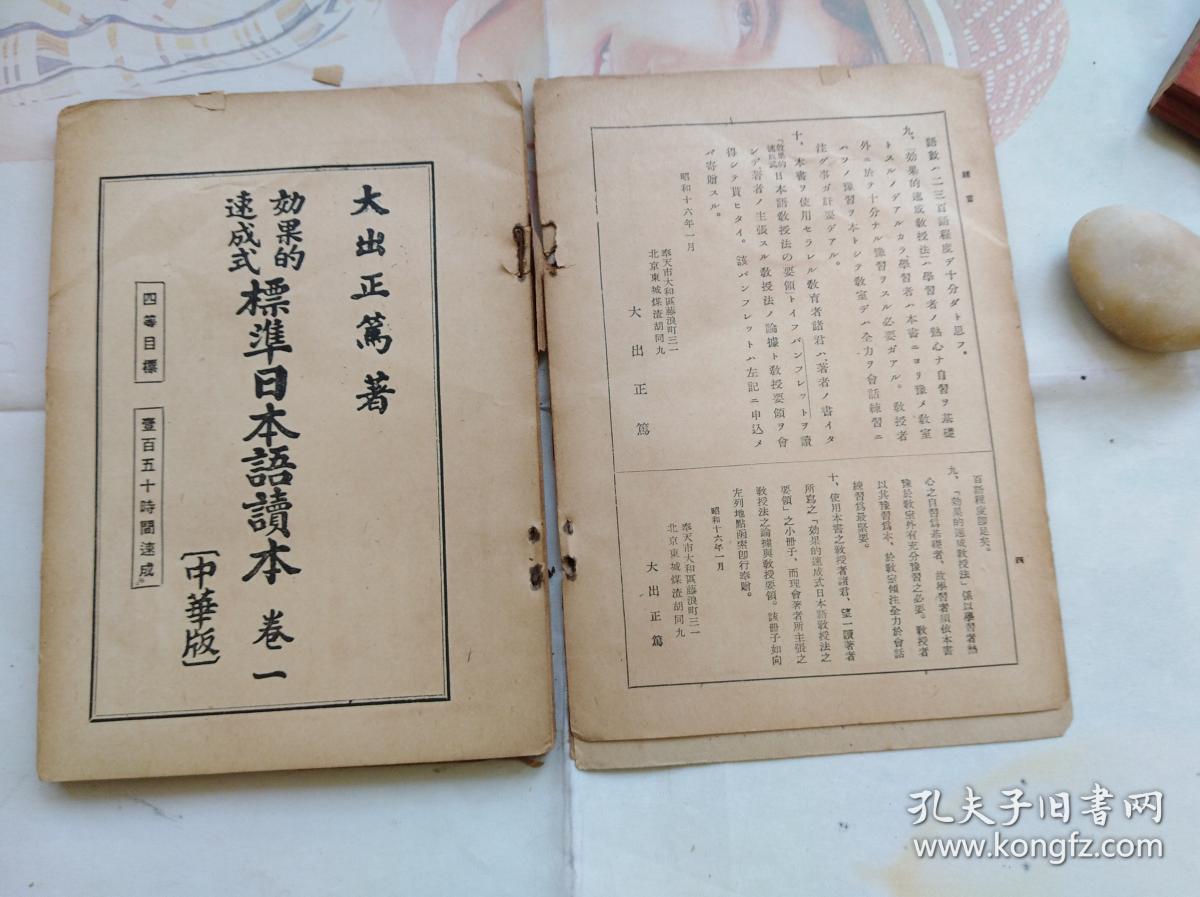 大出正篤著
効果的
速成式
標準日本語讀本 卷一
〔中華版〕
四等目標
壹百五十時間速成
緒言
語數ハ二三百語程度デ十分ダト思フ。
九、「効果的速成敎授法」ハ學習者ノ熱心ナ自習ヲ基礎
トスルノデアルカラ、學習者ハ本書ニヨリ豫メ敎室
外ニ於テ十分ナル豫習ヲスル必要ガアル。敎授者
ハソノ豫習ヲ本トシテ敎室デハ全力ヲ會話練習ニ
注グ事ガ肝要デアル。
十、本書ヲ使用セラレル敎育者諸君ハ、著者ノ書イタ
「効果的速成式日本語敎授法の要領」トイフパンフレットヲ讀
ンデ、著者ノ主張スル敎授法ノ論據ト敎授要領ヲ會
得シテ貰ヒタイ。該パンフレットハ左記ニ申込メ
バ寄贈スル。
昭和十六年一月
奉天市大和區藤浪町三一
北京東城煤渣胡同九
大出正篤
百語程度卽足矣。
九、「効果的速成敎授法」係以學習者熱
心之自習爲基礎者、故學習者須依本書
豫於敎室外有充分豫習之必要。敎授者
以其豫習爲本、於敎室傾注全力於會話
練習爲最緊要。
十、使用本書之敎授者諸君、望一讀著者
所寫之「効果的速成式日本語敎授法之
要領」之小册子、而理會著者所主張之
敎授法之論據與敎授要領。該册子如向
左列地點函索卽行奉贈。
昭和十六年一月
奉天市大和區藤浪町三一
北京東城煤渣胡同九
大出正篤
四
孔夫子旧书网
www.kongfz.com